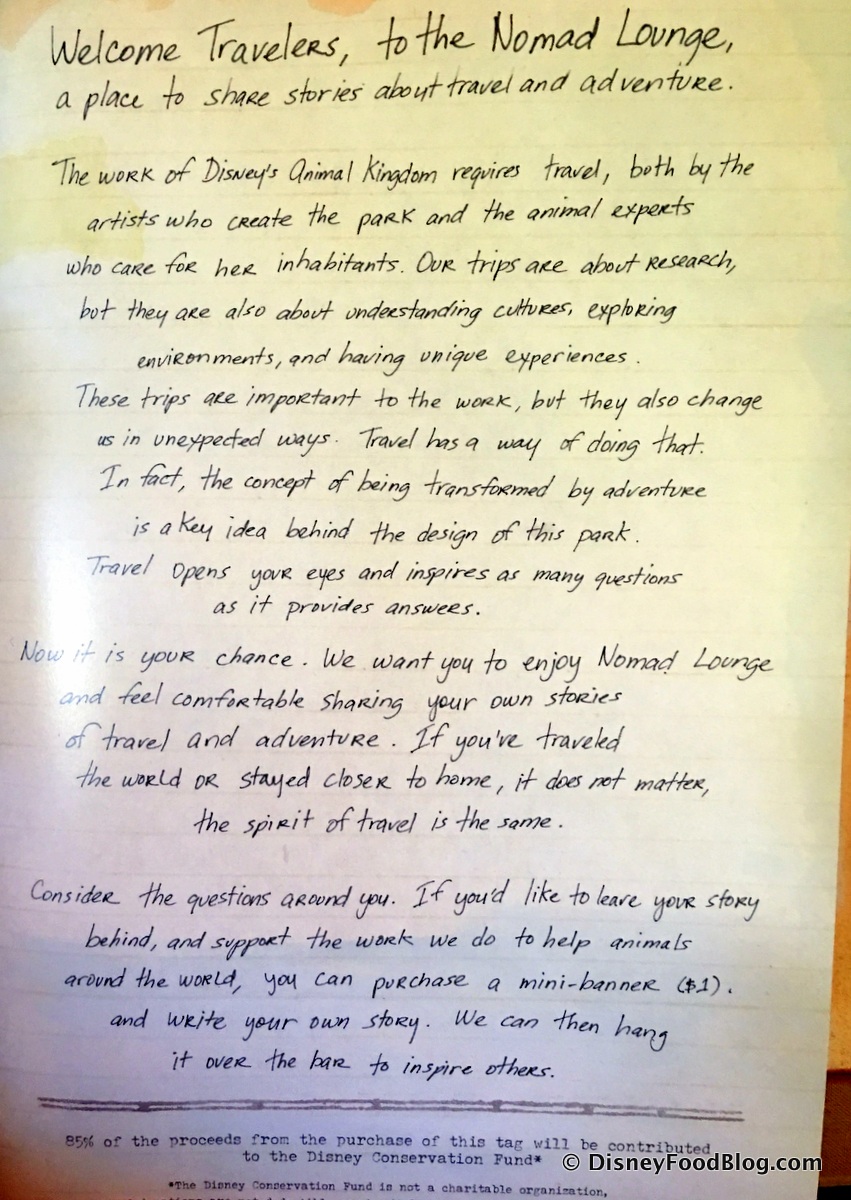 Welcome Travelers, to the Nomad Lounge,
a place to share stories about travel and adventure.
The work of Disney's Animal Kingdom requires travel, both by the
artists who create the park and the animal experts
who care for her inhabitants. Our trips are about research,
but they are also about understanding cultures, exploring
environments, and having unique experiences.
These trips are important to the work, but they also change
us in unexpected ways. Travel has a way of doing that.
In fact, the concept of being transformed by adventure
is a key idea behind the design of this park.
Travel opens your eyes and inspires as many questions
as it provides answers.
Now it is your chance. We want you to enjoy Nomad Lounge
and feel comfortable sharing your own stories
of travel and adventure. If you've traveled
the world or stayed closer to home, it does not matter,
the spirit of travel is the same.
Consider the questions around you. If you'd like to leave your story
behind, and support the work we do to help animals
around the world, you can purchase a mini-banner ($1).
and write your own story. We can then hang
it over the bar to inspire others.
85% of the proceeds from the purchase of this tag will be contributed
to the Disney Conservation Fund*
© DisneyFoodBlog.com
*The Disney Conservation Fund is not a charitable organization,